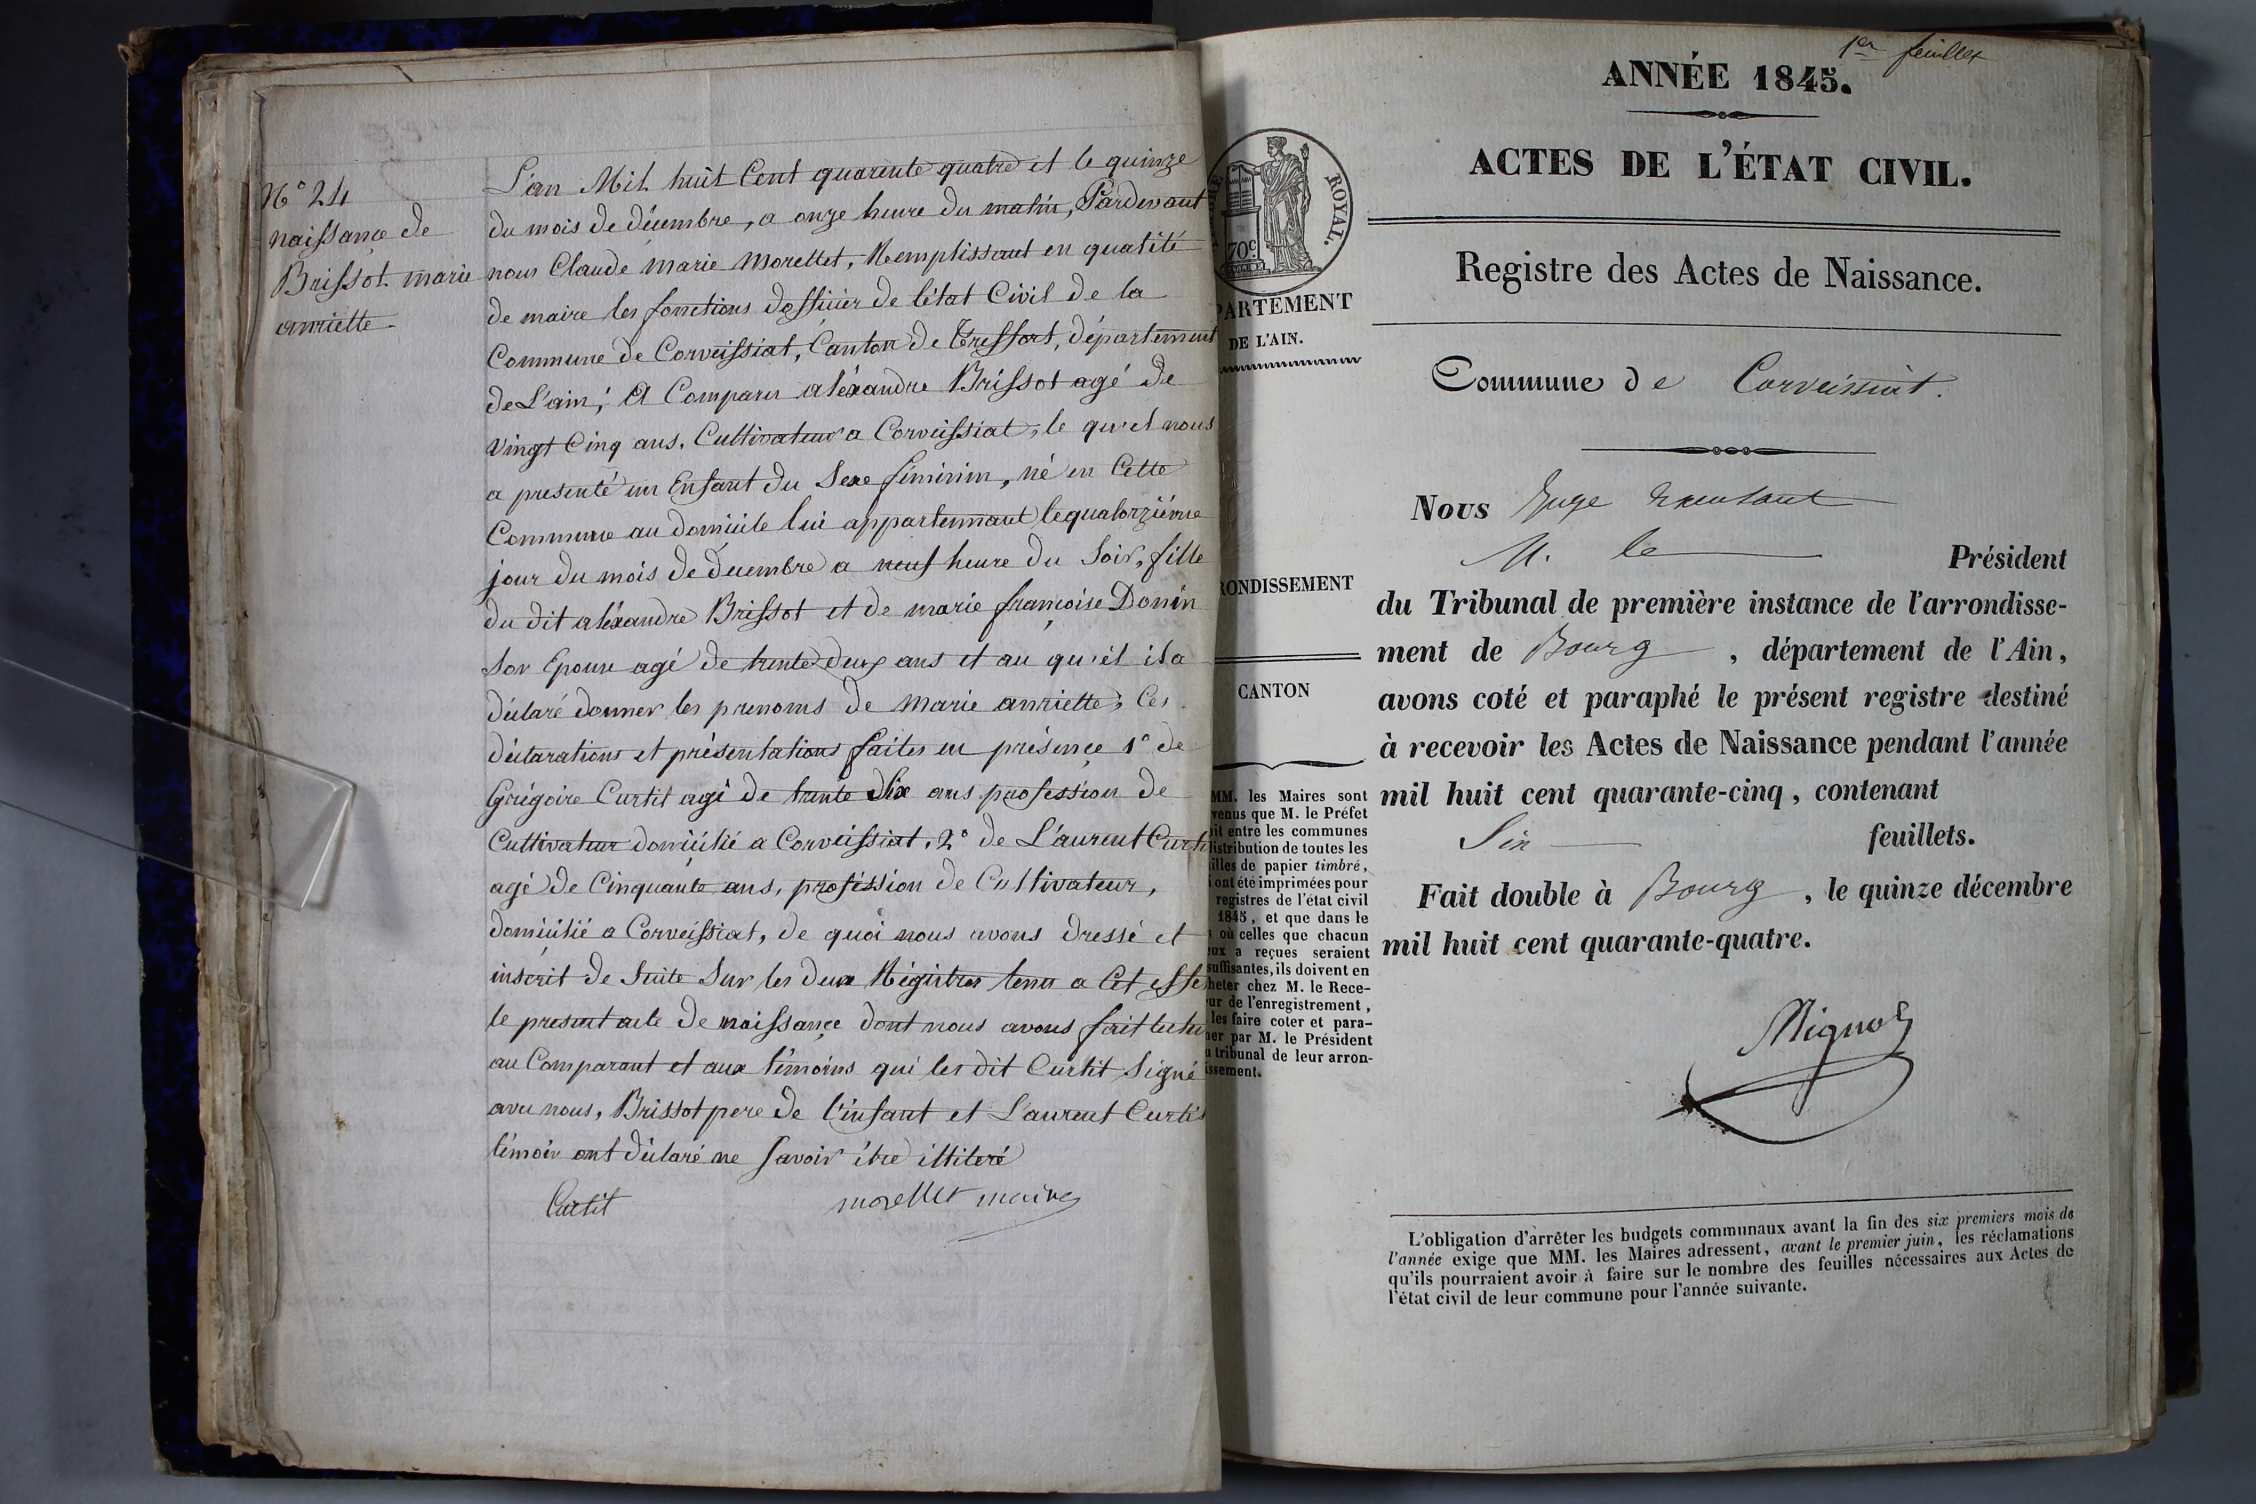 N° 24
naissance de
Brissot marie
anriette
L'an Mil huit Cent quarente quatre et le quinze
du mois de décembre, a onze heure du matin, Pardevant
nous Claude marie Morellet, Remplissant en qualité
de maire les fonctions dofficier de létat Civil de la
Commune de Corveissiat, Canton de Treffort, département
de L'ain; A Comparu aléxandre Brissot agé de
vingt Cinq ans, Cultivateur a Corveissiat, le qu'el nous
a presenté un Enfant du Sexe féminin, né en Cette
Commune au domicile lui appartennant le quatorziéme
jour du mois de Decembre a neuf heure du Soir, fille
du dit aléxandre Brissot et de marie françoise Donin
Son Epouse agé de trente deux ans et au qu'el il a
déclaré donner les prenoms de marie anriette; Ces
déclarations et présentations faites en présence 1° de
Grégoire Curtit agé de trente Six ans profession de
Cultivateur domicilié a Corveissiat, 2° de L'aurent Curtit
agé de Cinquante ans, profession de Cultivateur,
domicilié a Corveissiat, de quoi nous avons dressé et
inscrit de Suite Sur les deux Régistres tenu a Cet effet
le present acte de naissance dont nous avons fait lecture
au Comparant et aux témoins qui les dit Curtit Signé
avec nous, Brissot pere de l'enfant et L'aurent Curtit
témoin ont déclaré ne Savoir être illiteré
Curtit morellet maire
1er feuillet
ANNÉE 1845.
ACTES DE L'ÉTAT CIVIL.
ROYAL.
70c
PARTEMENT
DE L'AIN.
RONDISSEMENT
CANTON
MM. les Maires sont
venus que M. le Préfet
it entre les communes
istribution de toutes les
illes de papier timbré,
i ont été imprimées pour
registres de l'état civil
1845, et que dans le
s où celles que chacun
eux a reçues seraient
suffisantes, ils doivent en
heter chez M. le Rece-
ur de l'enregistrement,
les faire coter et para-
her par M. le Président
u tribunal de leur arron-
issement.
Registre des Actes de Naissance.
Commune de Corveissiat.
Nous Juge
M. le Président
du Tribunal de première instance de l'arrondisse-
ment de Bourg, département de l'Ain,
avons coté et paraphé le présent registre destiné
à recevoir les Actes de Naissance pendant l'année
mil huit cent quarante-cinq, contenant
Six feuillets.
Fait double à Bourg, le quinze décembre
mil huit cent quarante-quatre.
L'obligation d'arrêter les budgets communaux avant la fin des six premiers mois de
l'année exige que MM. les Maires adressent, avant le premier juin, les réclamations
qu'ils pourraient avoir à faire sur le nombre des feuilles nécessaires aux Actes de
l'état civil de leur commune pour l'année suivante.